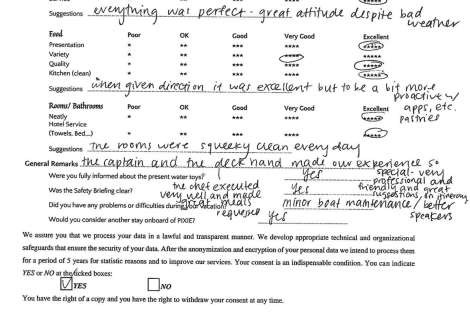 Suggestions everything was perfect - great attitude despite bad weather
Food Poor OK Good Very Good Excellent
Presentation * ** *** **** *****
Variety * ** *** **** *****
Quality * ** *** **** *****
Kitchen (clean) * ** *** **** *****
Suggestions when given direction it was excellent but to be a bit more proactive w/ apps, etc. pastries
Rooms/ Bathrooms Poor OK Good Very Good Excellent
Neatly * ** *** **** *****
Hotel Service
(Towels, Bed...) * ** *** **** *****
Suggestions the rooms were squeeky clean every day
General Remarks the captain and the deck hand made our experience so special - very professional and friendly and great suggestions on itinerary
the chef executed very well and made great meals requested
Were you fully informed about the present water toys? Yes
Was the Safety Briefing clear? Yes
Did you have any problems or difficulties during your vacation? minor boat maintenance / better speakers
Would you consider another stay onboard of PIXIE? Yes
We assure you that we process your data in a lawful and transparent manner. We develop appropriate technical and organizational
safeguards that ensure the security of your data. After the anonymization and encryption of your personal data we intend to process them
for a period of 5 years for statistic reasons and to improve our services. Your consent is an indispensable condition. You can indicate
YES or NO at the ticked boxes:
YES NO
You have the right of a copy and you have the right to withdraw your consent at any time.